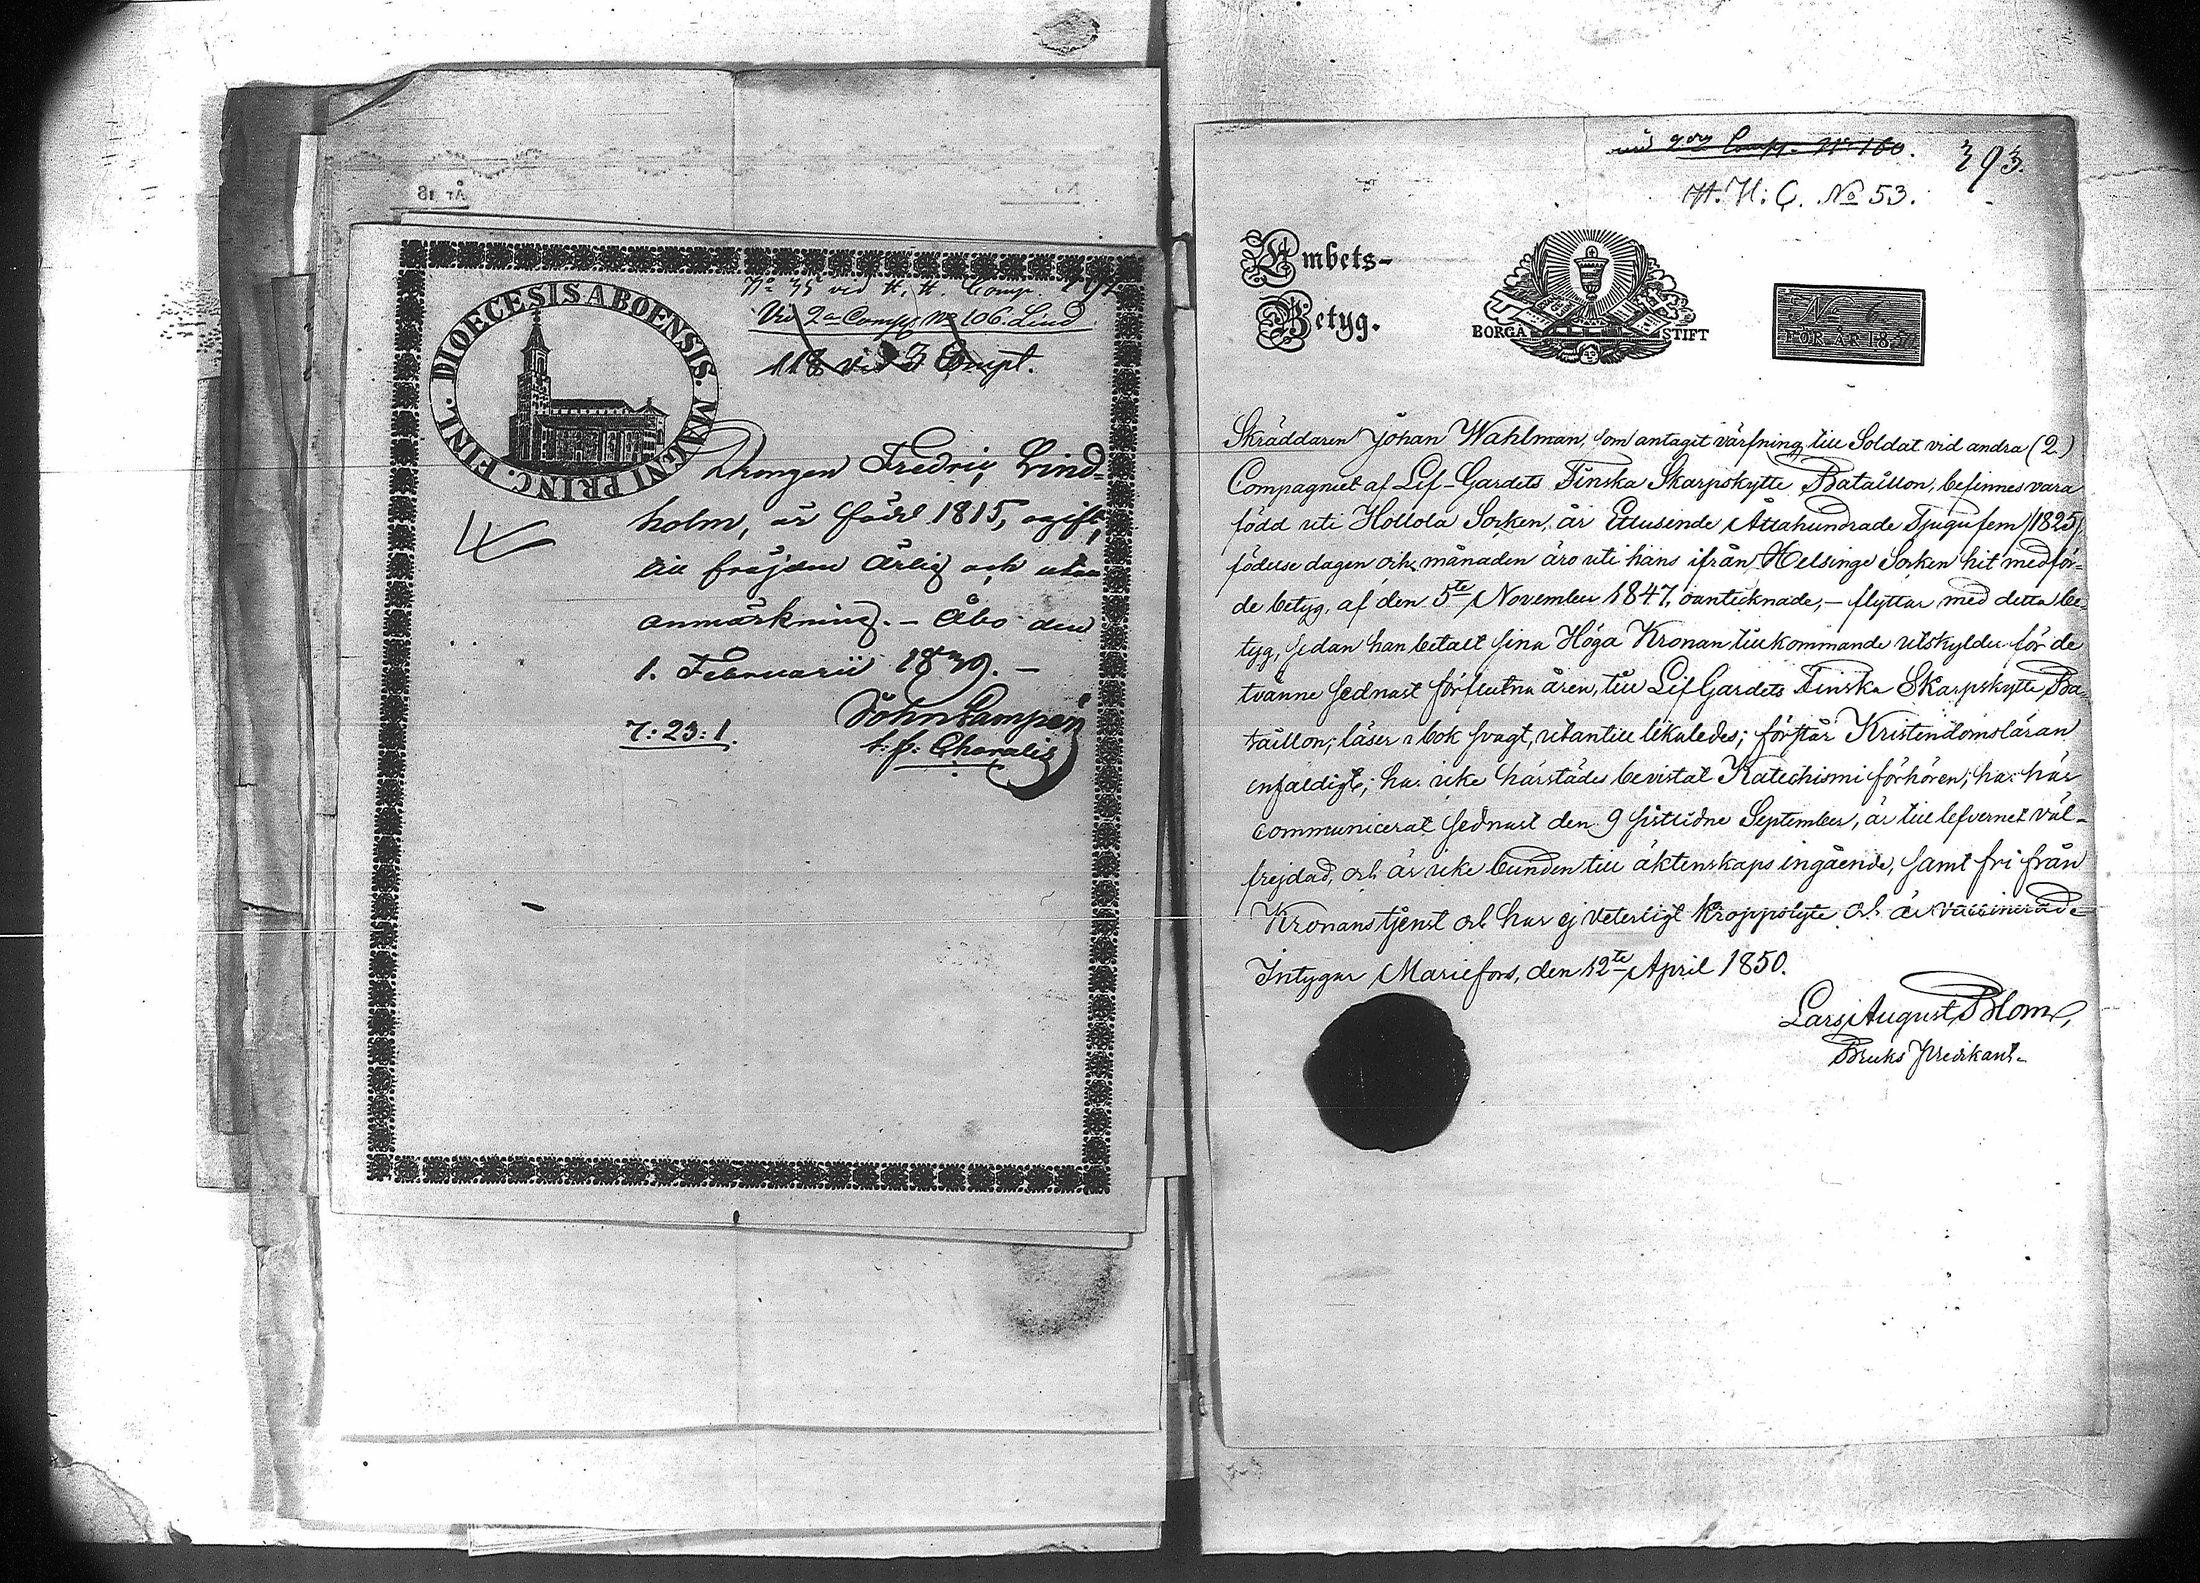 År 18
No
DIOECESIS ABOENSIS. MAGNI PRINC. FINL.
No 35 vid H. H. Comp.
Vid 2a Compg No 106. Lind
118 vid 3 Compt.
Drengen Fredric Lind-
holm, är född 1815, ogift,
till fräjden ärlig och utan
anmärkning. – Åbo den
1. Februarii 1839. –
7:23:1.
John Lampén
t. f.
393.
Comp. No 160.
H. H. C. No 53.
Embets-
Betyg.
BORGÅ STIFT
No 6
FÖR ÅR 1850
Skräddaren Johan Wahlman, som antagit värfning till Soldat vid andra (2.)
Compagniet af Lif-Gardets Finska Skarpskytte Bataillon, befinnes vara
född uti Hollola Socken, år Ettusende Åttahundrade Tjugufem /1825/,
födelse dagen och månaden äro uti hans ifrån Helsinge Socken hit medför-
de betyg, af den 5te November 1847, oantecknade, – flyttar med detta be-
tyg, sedan han betalt sina Höga Kronan tillkommande utskylder för de
tvänne sednast förflutna åren, till Lif Gardets Finska Skarpskytte Ba-
taillon; läser i bok svagt, utantill likaledes; förstår Kristendomsläran
enfaldigt; har icke härstädes bevistat Katechismi förhören; har här
communicerat sednast den 9 sistlidne September, är till lefvernet väl-
frejdad, och är icke bunden till äktenskaps ingående, samt fri från
Kronans tjenst och har ej veterligt kroppslyte och är vaccinerad
Intygar Mariefors, den 12te April 1850.
Lars August Blom,
Bruks Predikant.